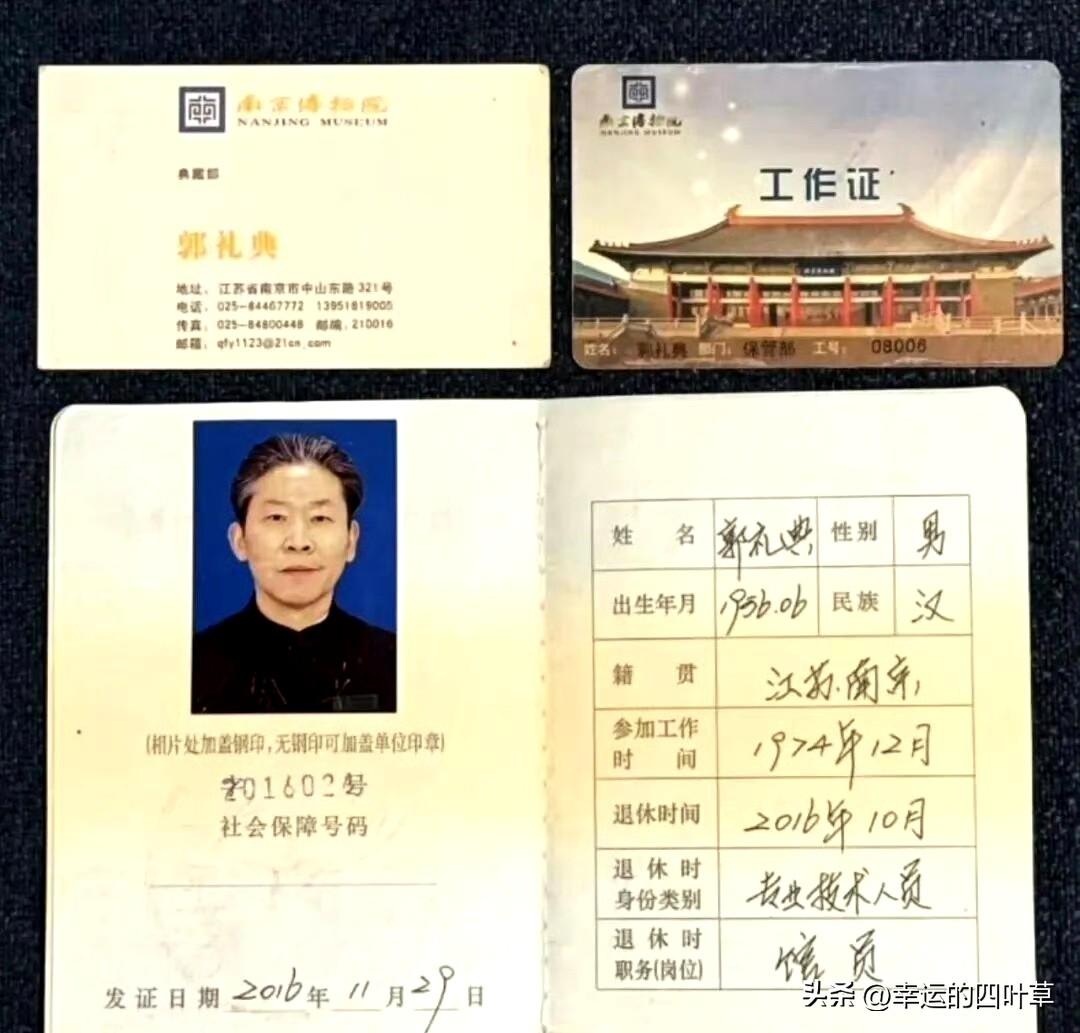 南京博物院
NANJING MUSEUM
典藏部
郭礼典
地址：江苏省南京市中山东路321号
电话：025-84467772 13951819005
传真：025-84800448 邮编：210016
邮箱：qfy1123@21cn.com
南京博物院
NANJING MUSEUM
工作证
南京博物院
姓名：郭礼典 部门：保管部 工号：08006
(相片处加盖钢印，无钢印可加盖单位印章)
201602号
社会保障号码
发证日期 2016年 11月29日
姓名 郭礼典 性别 男
出生年月 1956.06 民族 汉
籍贯 江苏南京
参加工作时间 1974年12月
退休时间 2016年10月
退休时身份类别 专业技术人员
退休时职务(岗位) 馆员
头条 @幸运的四叶草